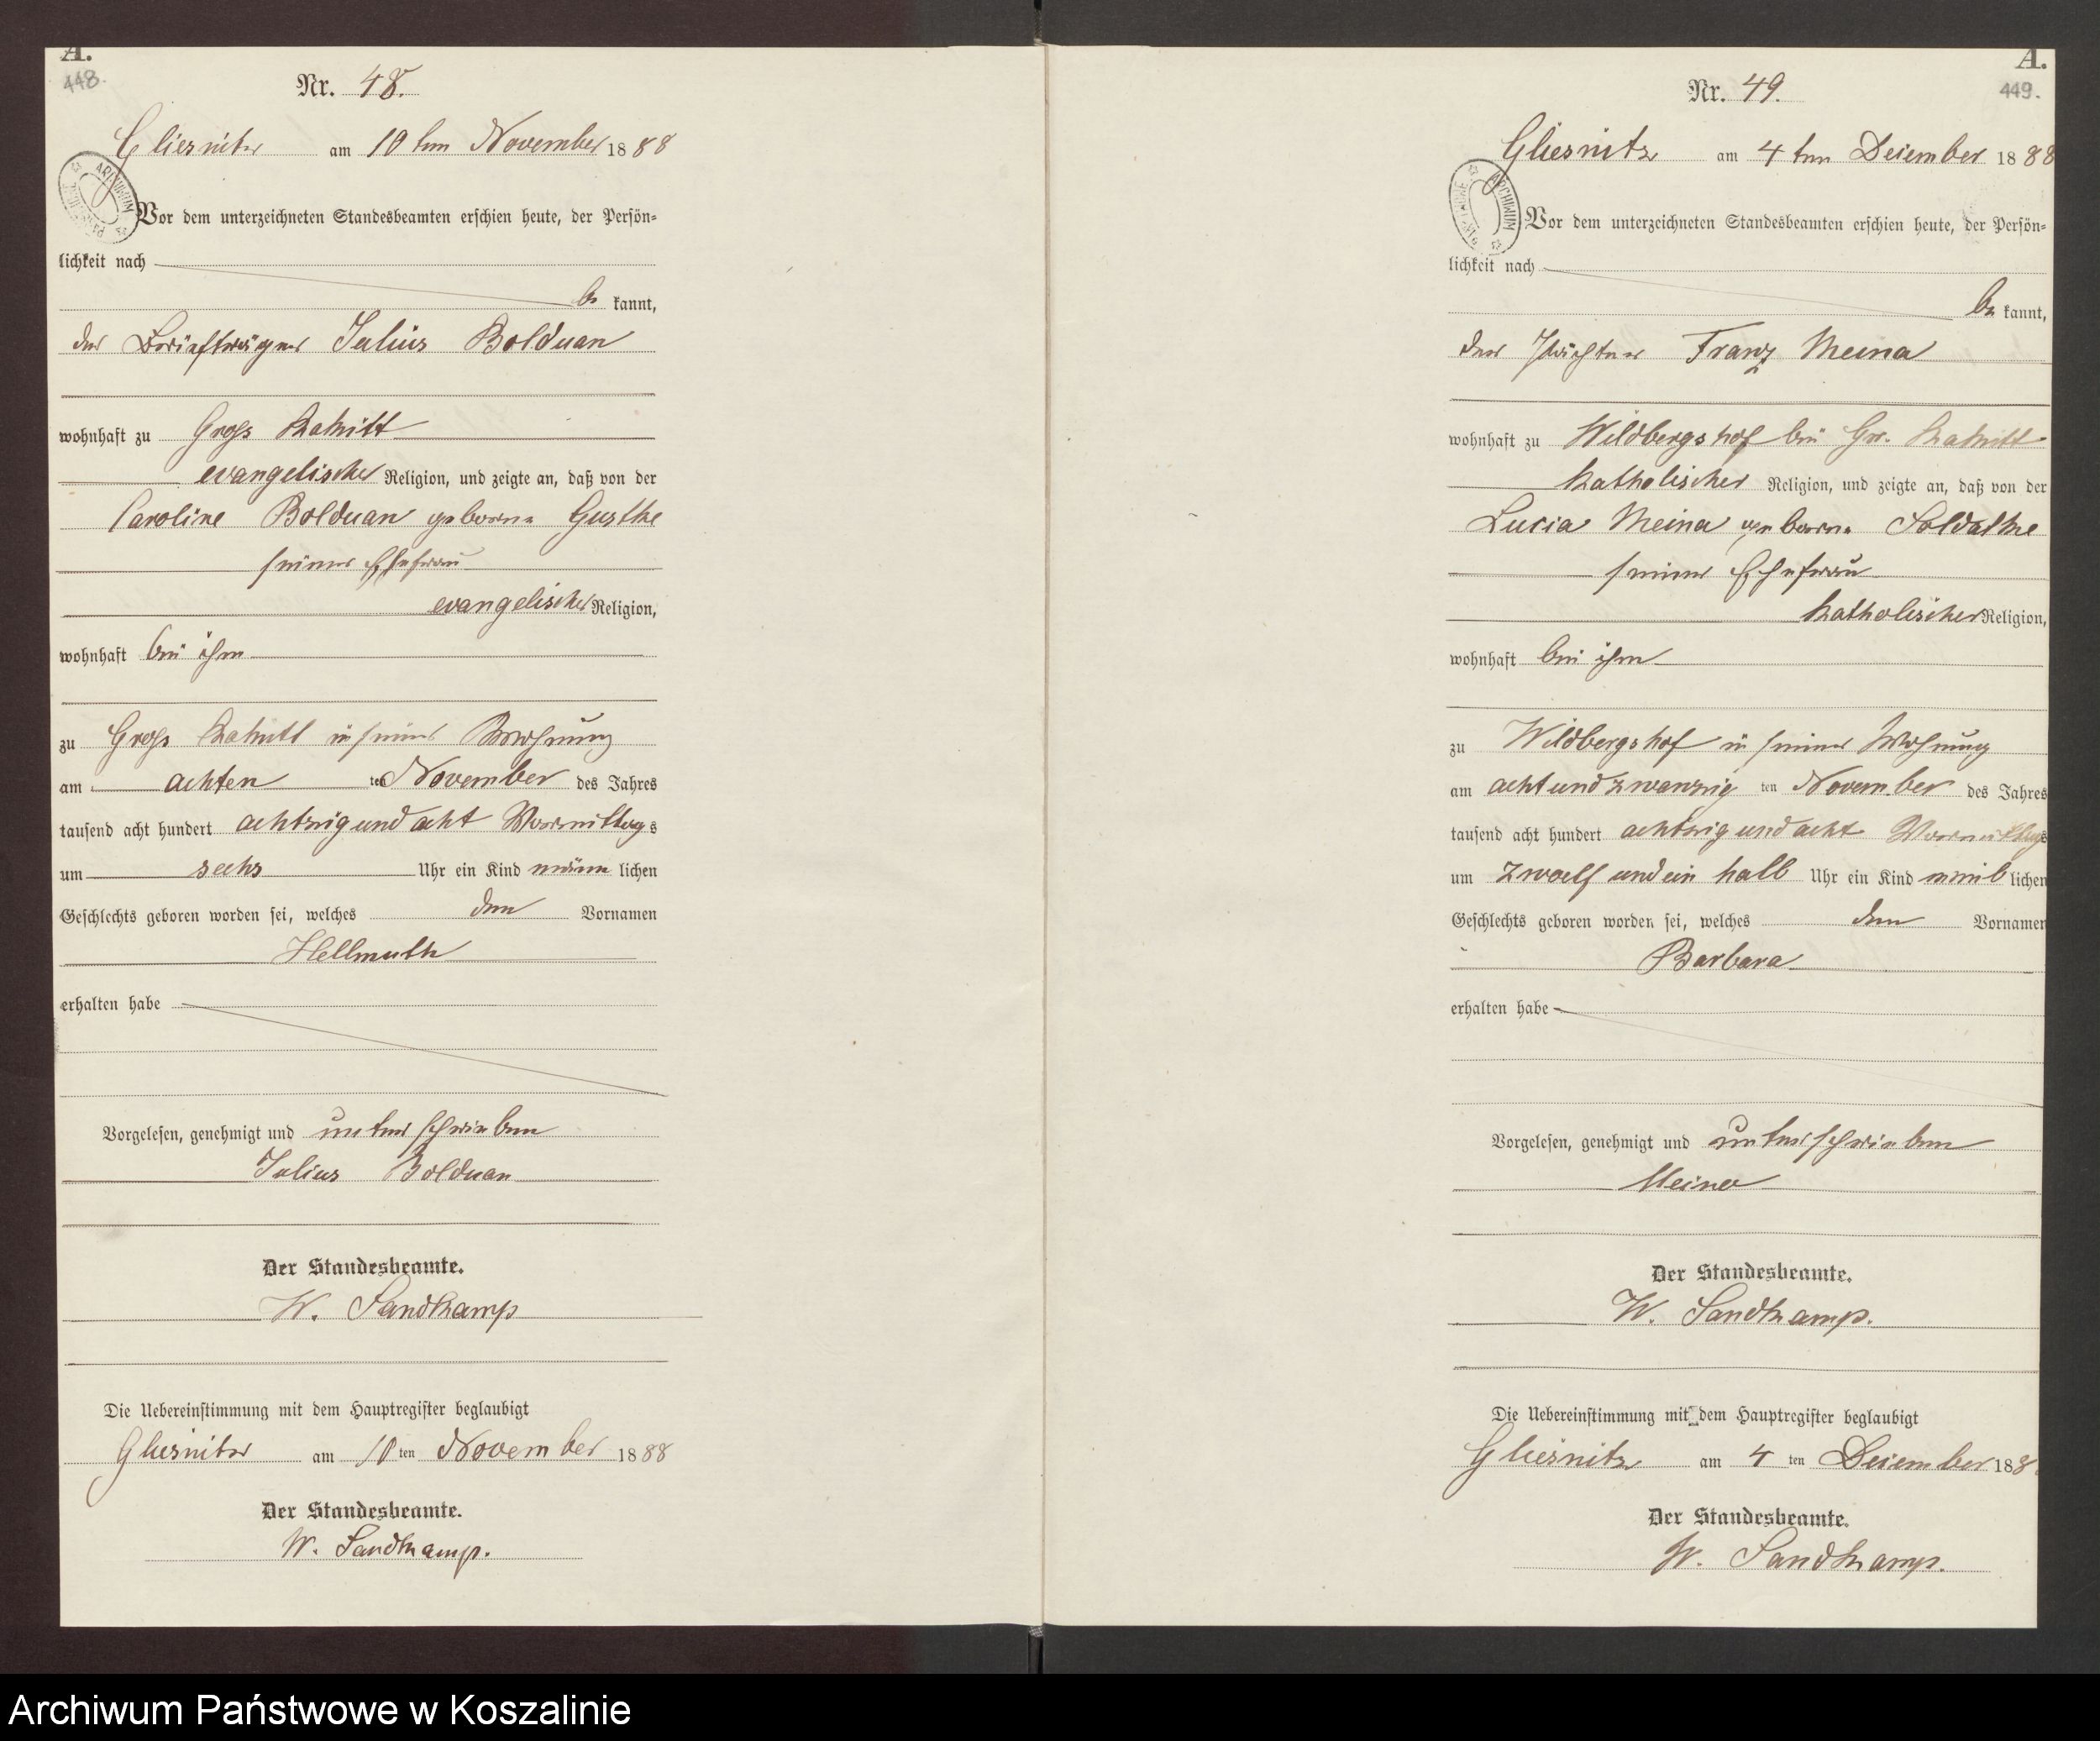 A.
448.
Nr. 48.
Gliesnitz am 10ten November 1888
Vor dem unterzeichneten Standesbeamten erschien heute, der Persön-
lichkeit nach
be kannt,
der Briefträger Julius Bolduan
wohnhaft zu Gross Rakitt
evangelischer Religion, und zeigte an, daß von der
Caroline Bolduan geborne Gusthe
seiner Ehefrau
evangelischer Religion,
wohnhaft bei ihm
zu Gross Rakitt in seiner Wohnung
am achten ten November des Jahres
tausend acht hundert achtzig und acht Vormittags
um sechs Uhr ein Kind männ lichen
Geschlechts geboren worden sei, welches den Vornamen
Hellmuth
erhalten habe
Vorgelesen, genehmigt und unterschrieben
Julius Bolduan
Der Standesbeamte.
W. Sandkamp
Die Uebereinstimmung mit dem Hauptregister beglaubigt
Gliesnitz am 10 ten November 1888
Der Standesbeamte.
W. Sandkamp.
A.
449.
Nr. 49.
Gliesnitz am 4ten December 1888
ARCHIWUM
Vor dem unterzeichneten Standesbeamten erschien heute, der Persön-
lichkeit nach
be kannt,
der Pächter Franz Meina
wohnhaft zu Wildbergshof bei Gr. Rakitt
katholischer Religion, und zeigte an, daß von der
Lucia Meina geborne Soldathe
seiner Ehefrau
katholischer Religion,
wohnhaft bei ihm
zu Wildbergshof in seiner Wohnung
am achtundzwanzig ten November des Jahres
tausend acht hundert achtzig und acht Vormittags
um zwoelf und ein halb Uhr ein Kind weib lichen
Geschlechts geboren worden sei, welches den Vornamen
Barbara
erhalten habe
Vorgelesen, genehmigt und unterschrieben
Meina
Der Standesbeamte.
W. Sandkamp.
Die Uebereinstimmung mit dem Hauptregister beglaubigt
Gliesnitz am 4 ten December 188
Der Standesbeamte.
W. Sandkamp.
Archiwum Państwowe w Koszalinie